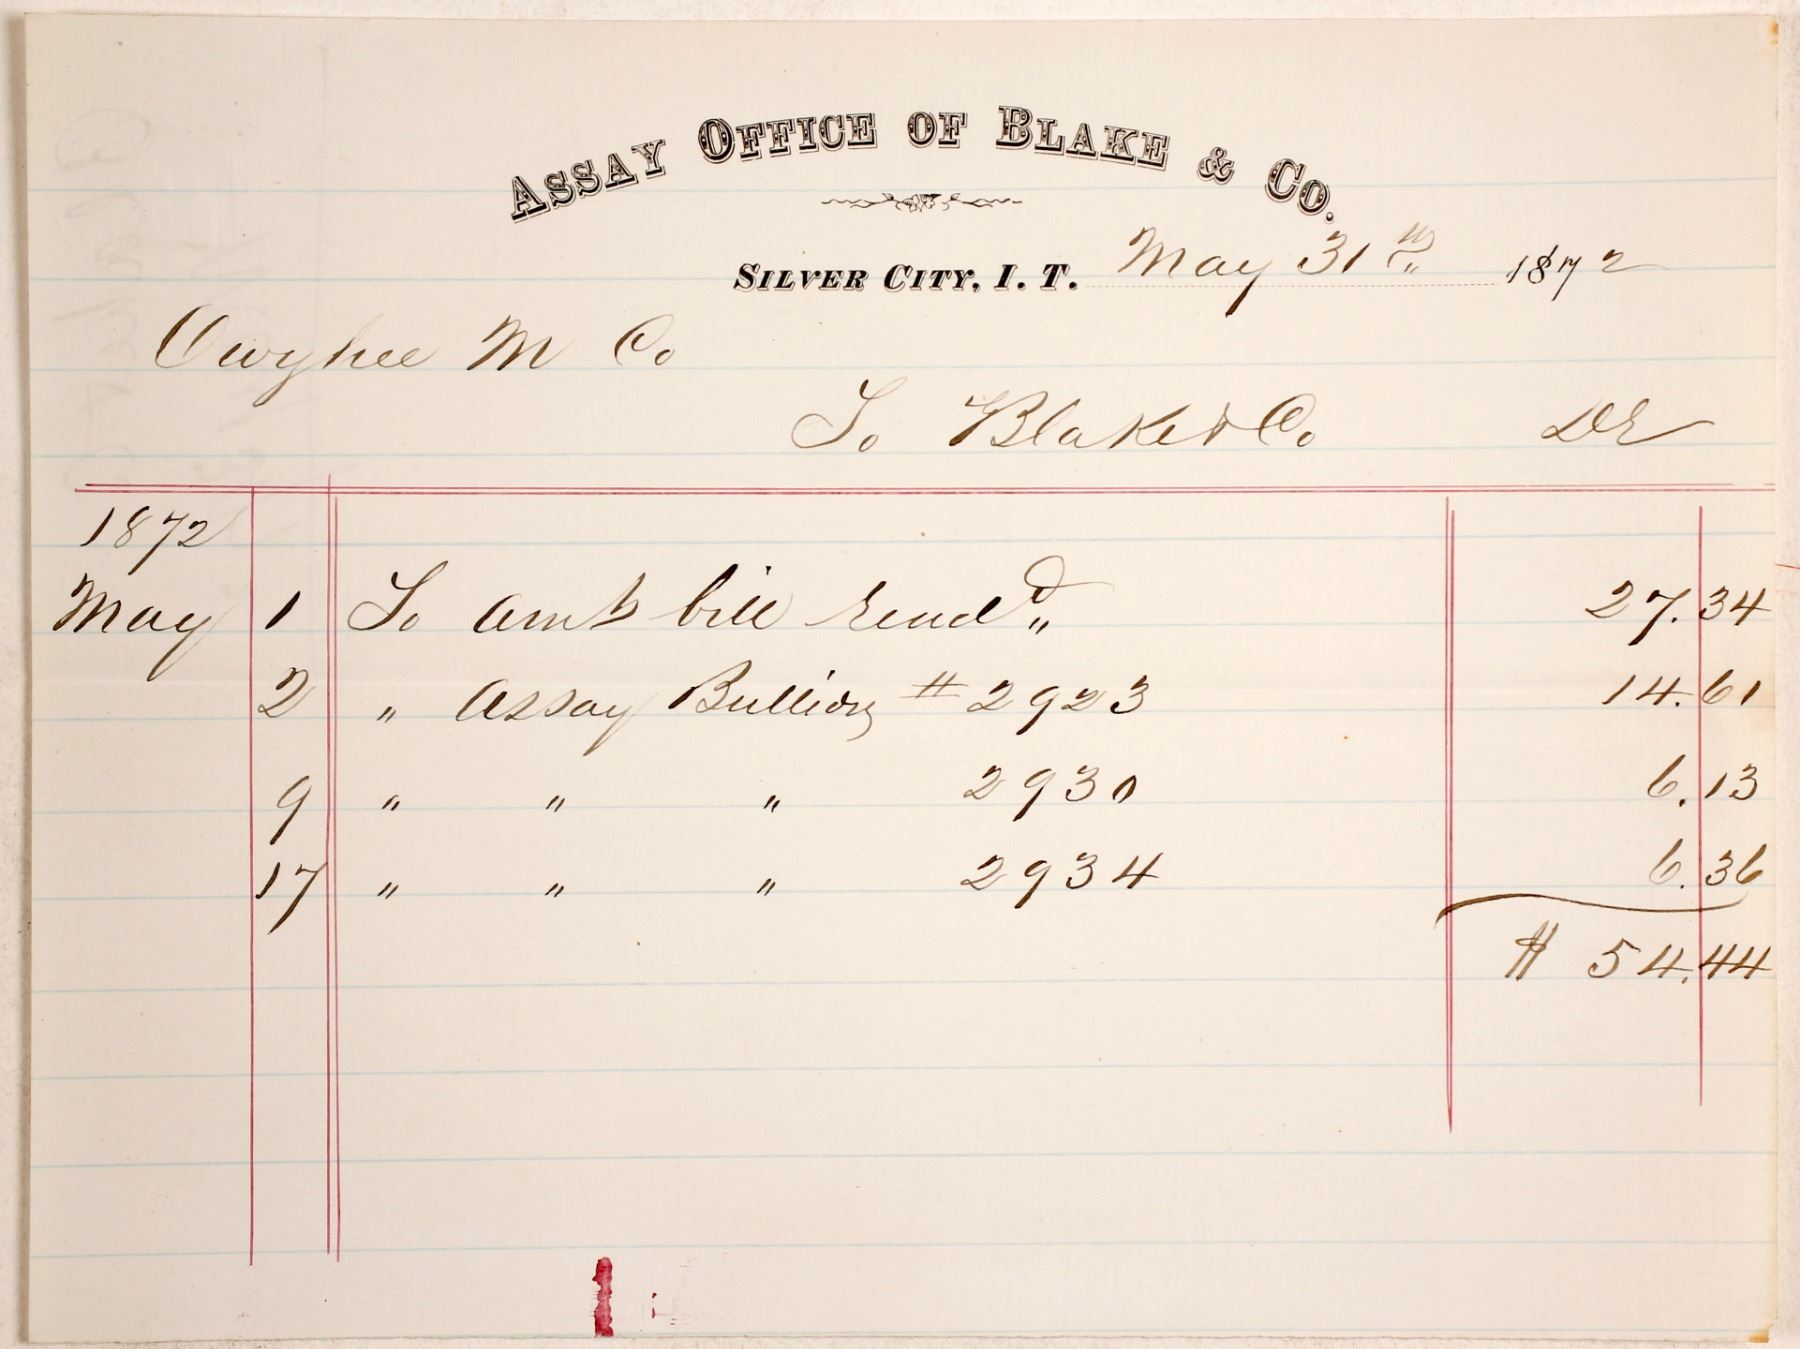 ASSAY OFFICE OF BLAKE & CO.
SILVER CITY, I. T. May 31st 1872
Owyhee M Co
To Blake & Co Dr
1872
May 1 To amt bill rend'd 27.34
2 " Assay Bullion # 2923 14.61
9 " " " 2930 6.13
17 " " " 2934 6.36
$ 54.44